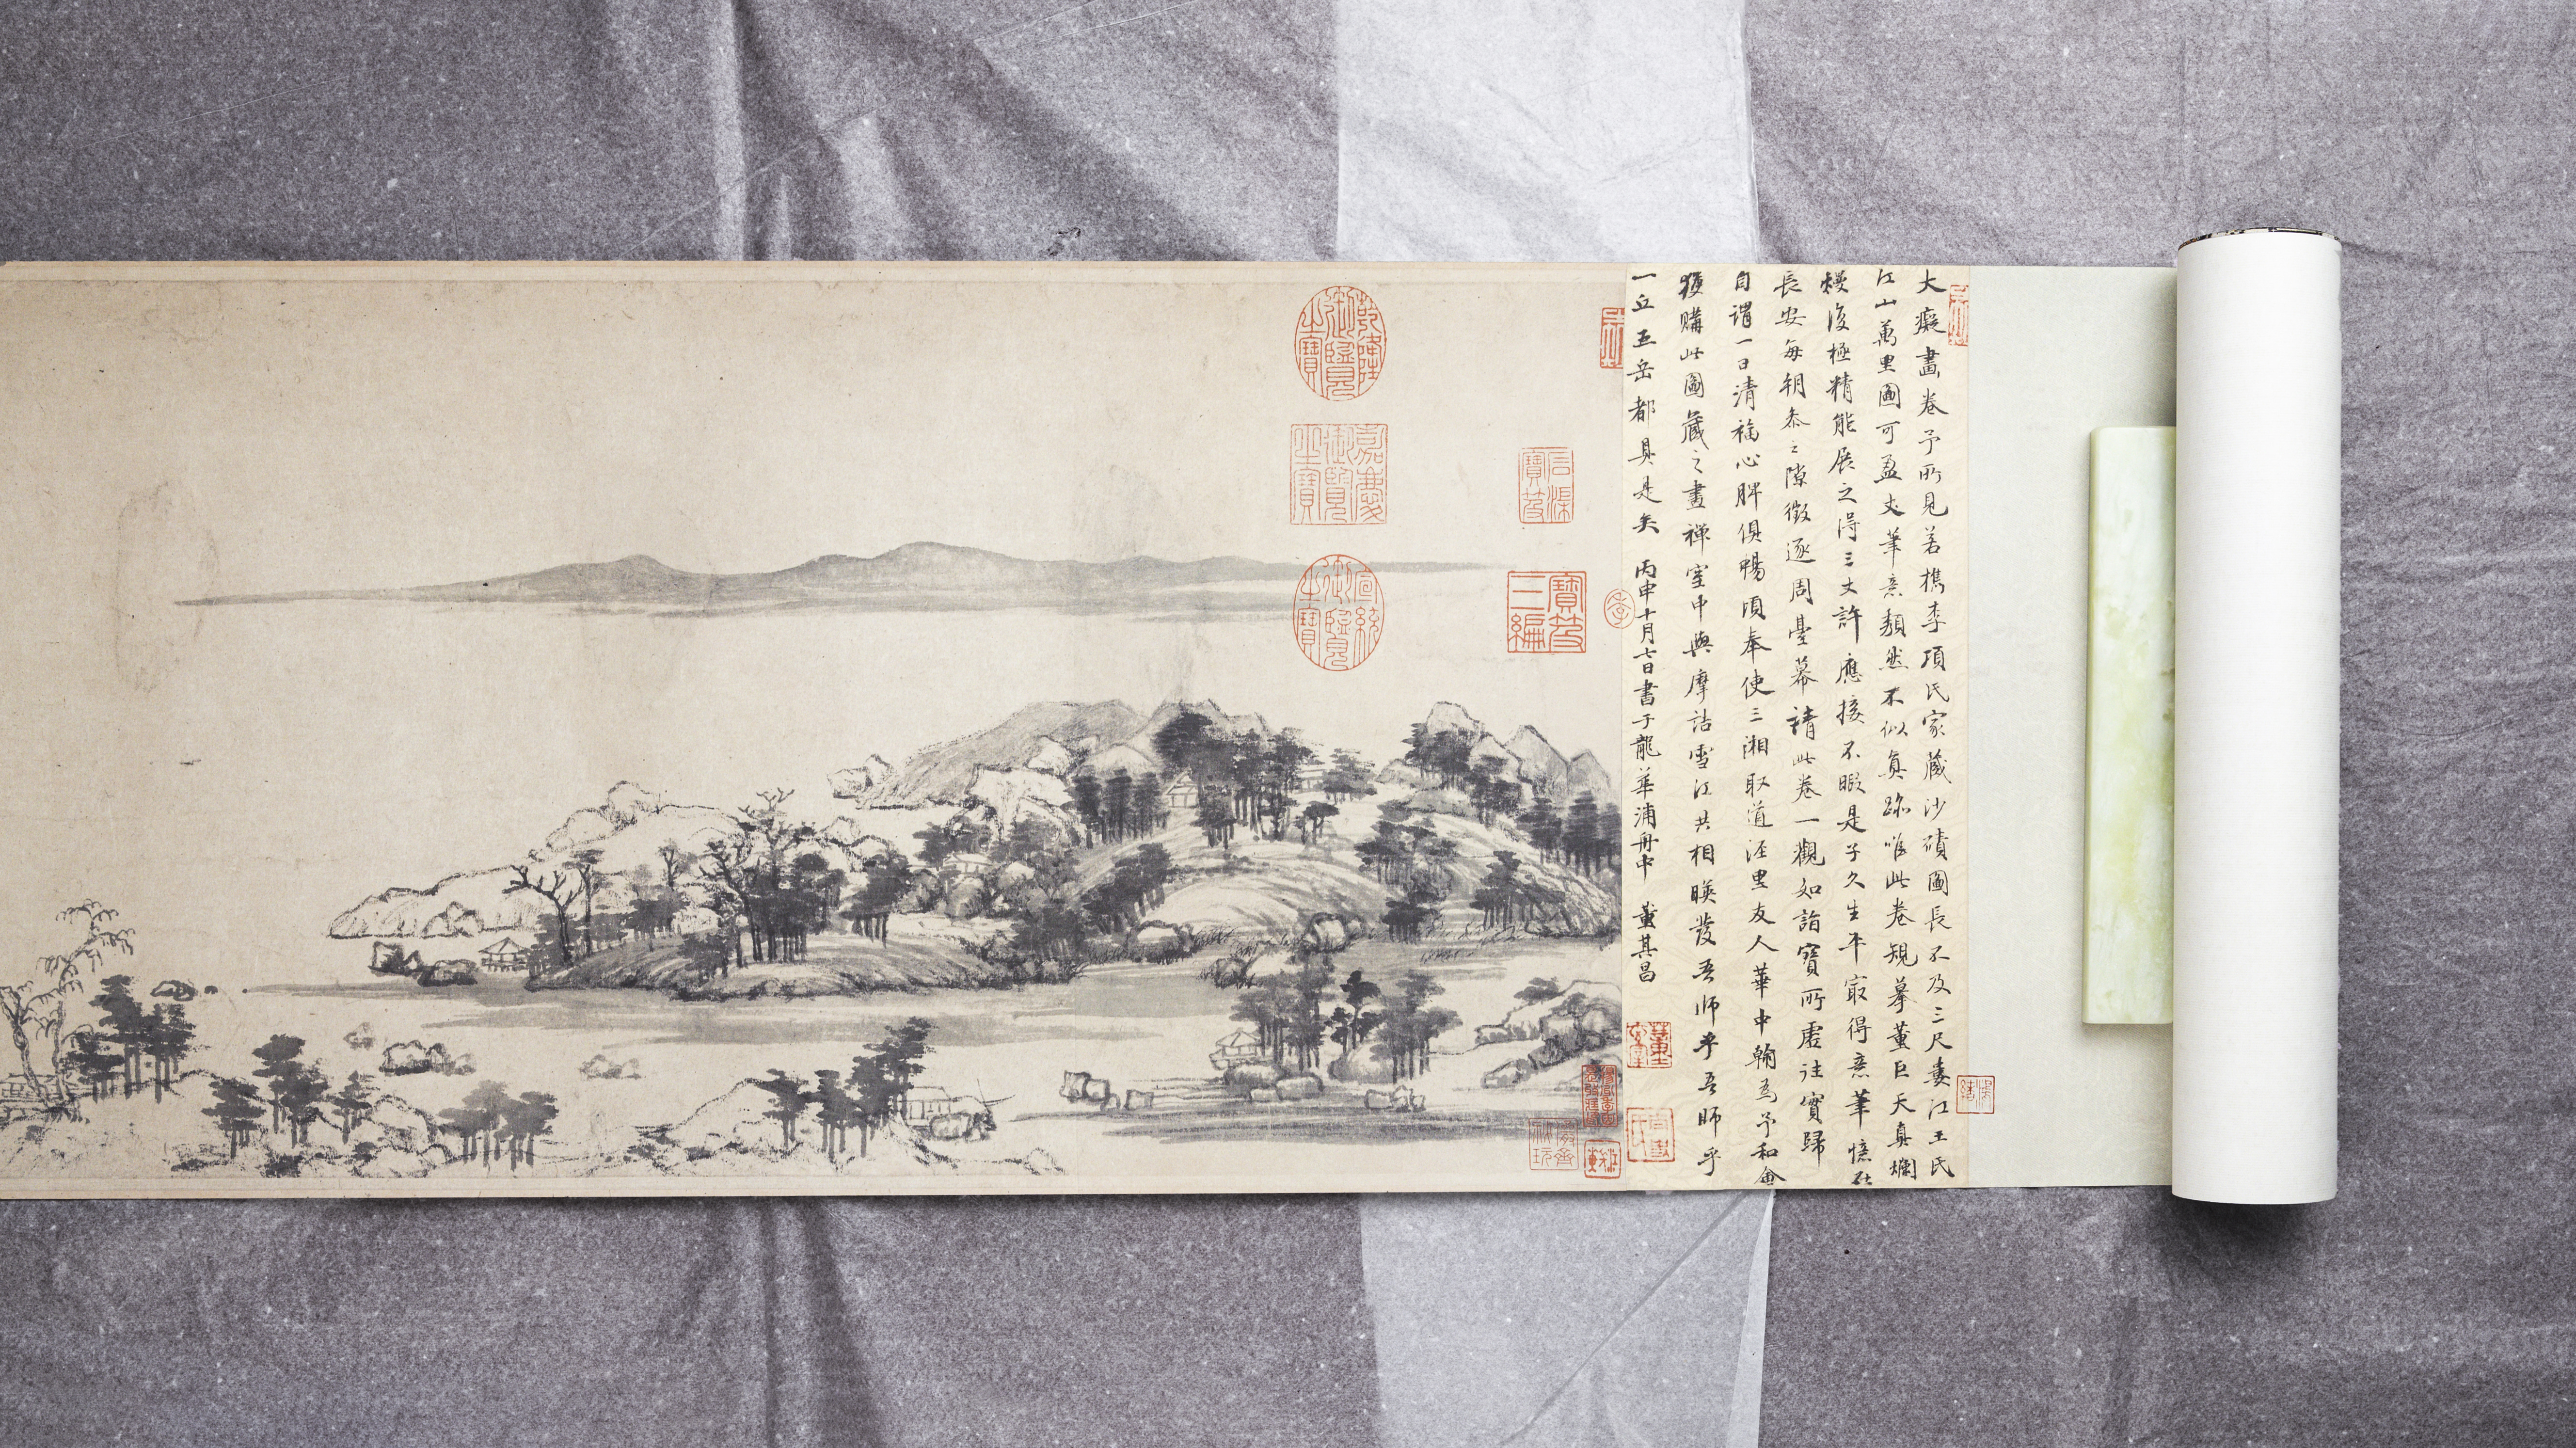 大癡畫卷予所見若檇李項氏家藏沙磧圖長不及三尺婁江王氏
江山萬里圖可盈丈筆意頹然不似真跡唯此卷規摹董巨天真爛
熳復極精能展之得三丈許應接不暇是子久生平最得意筆憶在
長安每朝叅之隙徵逐周臺幕請此卷一觀如詣寶所虛往實歸
自謂一日清福心脾俱暢頃奉使三湘取道涇里友人華中翰為予和會
獲購此圖藏之畫禪室中與摩詰雪江共相暎發吾師乎吾師乎
一丘五岳都具是矣 丙申十月七日書于龍華浦舟中 董其昌
乾隆御覽之寶
嘉慶御覽之寶
宣統御覽之寶
石渠寶笈
寶笈三編